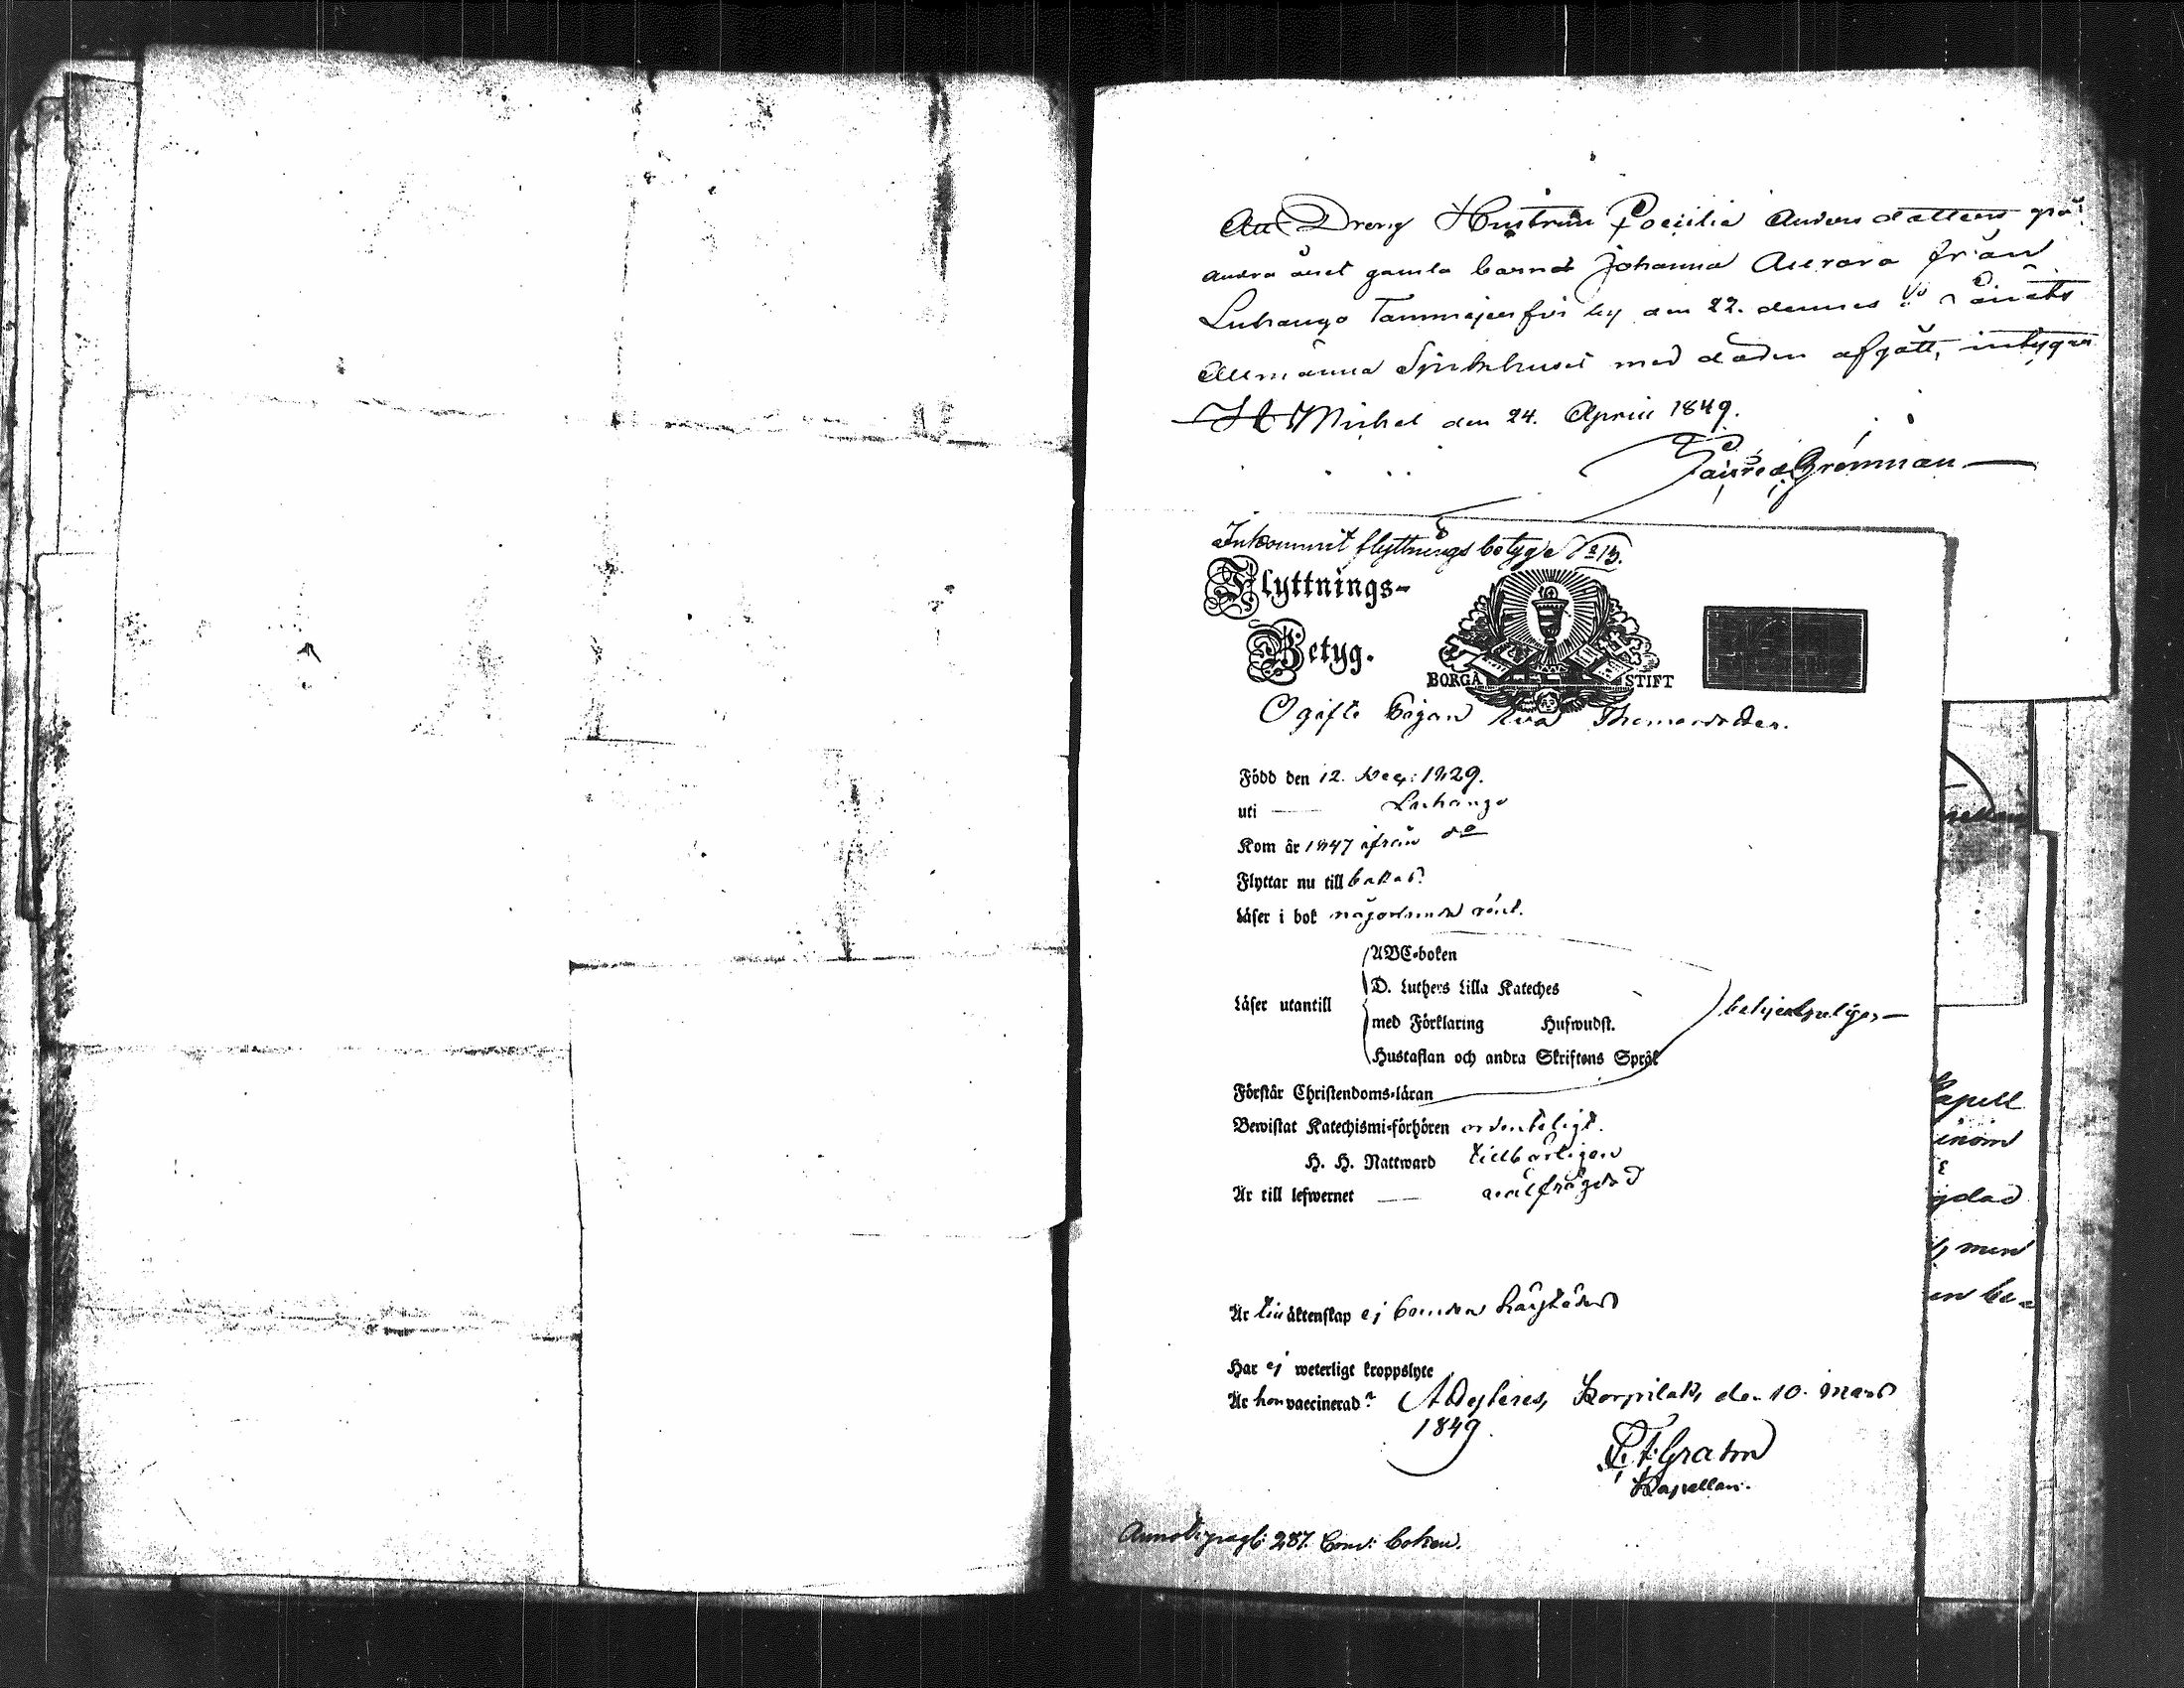 Att Dreng Hustrun Coecilia Andersdotters på
andra året gamla barnet Johanna Aurora från
Luhango Tammijerfvi by den 22. dennes å Länets
Allmänna Sjukhuset med döden afgått, intygar
St Michel den 24. April 1849.
Grönman
Inkommit flyttnings betyg No 13.
Flyttnings-
Betyg.
BORGÅ STIFT
Ogifte Pigan Eva Thomasdotter.
Född den 12. Dec: 1829.
uti Luhango
Kom år 1847 ifrån do
Flyttar nu till bakas
Läser i bok någorlunda rent.
ABC-boken
D. Luthers Lilla Kateches
Läser utantill
med Förklaring Huswudst.
Hustaflan och andra Skriftens Språk
Förstår Christendoms-läran
Bewistat Katechismi-förhören ordenteligt.
H. H. Nattward tillbörligen
Är till lefwernet wälfrägdad
Är till äktenskap ej bunden härstädes
Har ej weterligt kroppslyte
Är hon vaccinerad? Attesteres, Korpilaks den 10. Mars
1849.
Kapellan.
287. boken.
Kapell
inom
gdad
men